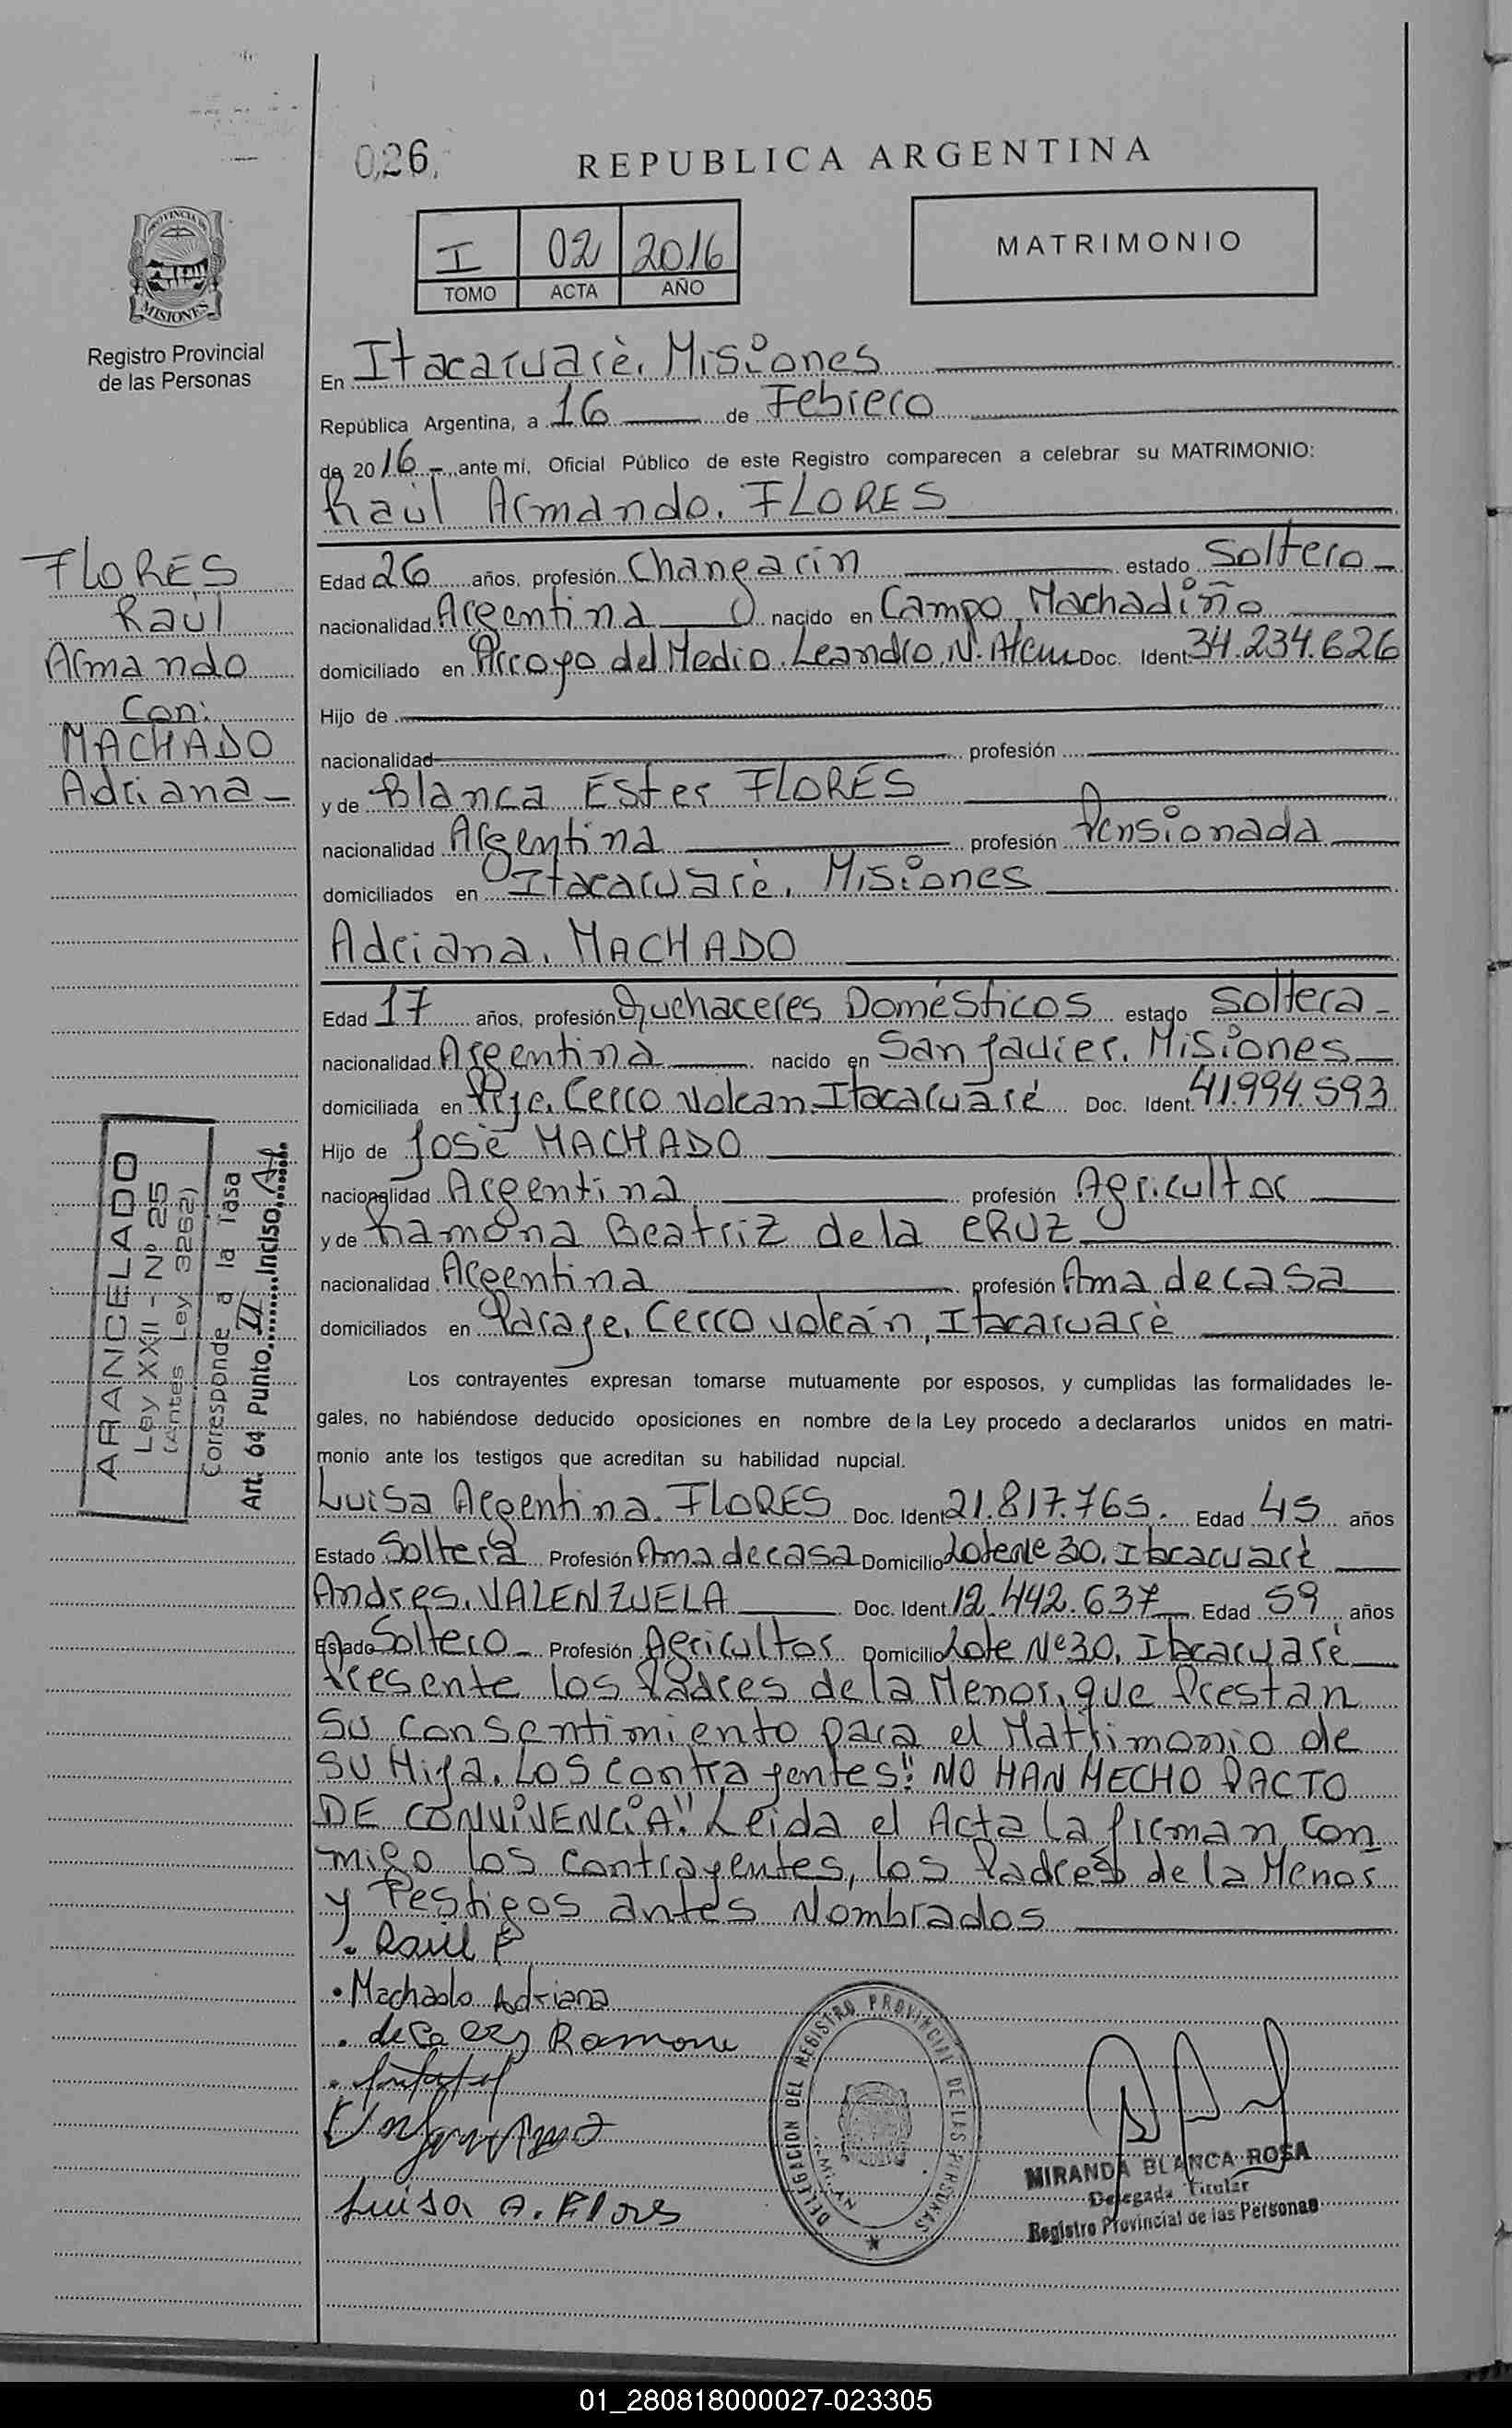 026
REPUBLICA ARGENTINA
I 02 2016
TOMO ACTA AÑO
MATRIMONIO
PROVINCIA DE
MISIONES
Registro Provincial
de las Personas
En Itacaruarè. Misiones
República Argentina, a 16 de Febrero
de 2016 ante mí, Oficial Público de este Registro comparecen a celebrar su MATRIMONIO:
Raúl Armando. FLORES
FLORES
Raúl
Armando
Con:
MACHADO
Adriana
Edad 26 años, profesión Changarin estado Soltero
nacionalidad Argentina nacido en Campo Machadiño
domiciliado en Arroyo del Medio. Leandro N. Alem Doc. Ident. 34.234.626
Hijo de
nacionalidad profesión
y de Blanca Ester FLORES
nacionalidad Argentina profesión Pensionada
domiciliados en Itacaruarè. Misiones
Adriana. MACHADO
Edad 17 años, profesión Quehaceres Domésticos estado Soltera
nacionalidad Argentina nacido en San Javier. Misiones
domiciliada en Pje. Cerro Volcan. Itacaruaré Doc. Ident. 41.994.593
Hijo de Josè MACHADO
nacionalidad Argentina profesión Agricultor
y de Ramona Beatriz de la CRUZ
nacionalidad Argentina profesión Ama de casa
domiciliados en Paraje. Cerro volcán, Itacaruarè
ARANCELADO
Ley XXII - Nº 25
(Antes Ley 3262)
Corresponde a la Tasa
Art. 64 Punto II Inciso
Los contrayentes expresan tomarse mutuamente por esposos, y cumplidas las formalidades le-
gales, no habiéndose deducido oposiciones en nombre de la Ley procedo a declararlos unidos en matri-
monio ante los testigos que acreditan su habilidad nupcial.
Luisa Argentina. FLORES Doc. Ident 21.817.765. Edad 45 años
Estado Soltera Profesión Ama de casa Domicilio Lote Nº 30. Itacaruarè
Andres. VALENZUELA Doc. Ident. 12.442.637 Edad 59 años
Estado Soltero Profesión Agricultor Domicilio Lote Nº 30. Itacaruarè
Presente los Padres de la Menor, que Prestan
su consentimiento para el Matrimonio de
su Hija. Los contrayentes: "NO HAN HECHO PACTO
DE CONVIVENCIA". Leida el Acta la firman con
migo los contrayentes, los Padres de la Menor
y Testigos antes Nombrados
Raúl F
Machado Adriana
de la Ramona
Luisa A. Flores
DELEGACION DEL REGISTRO PROVINCIAL DE LAS PERSONAS
MIRANDA BLANCA ROSA
Delegada Titular
Registro Provincial de las Personas
01_280818000027-023305